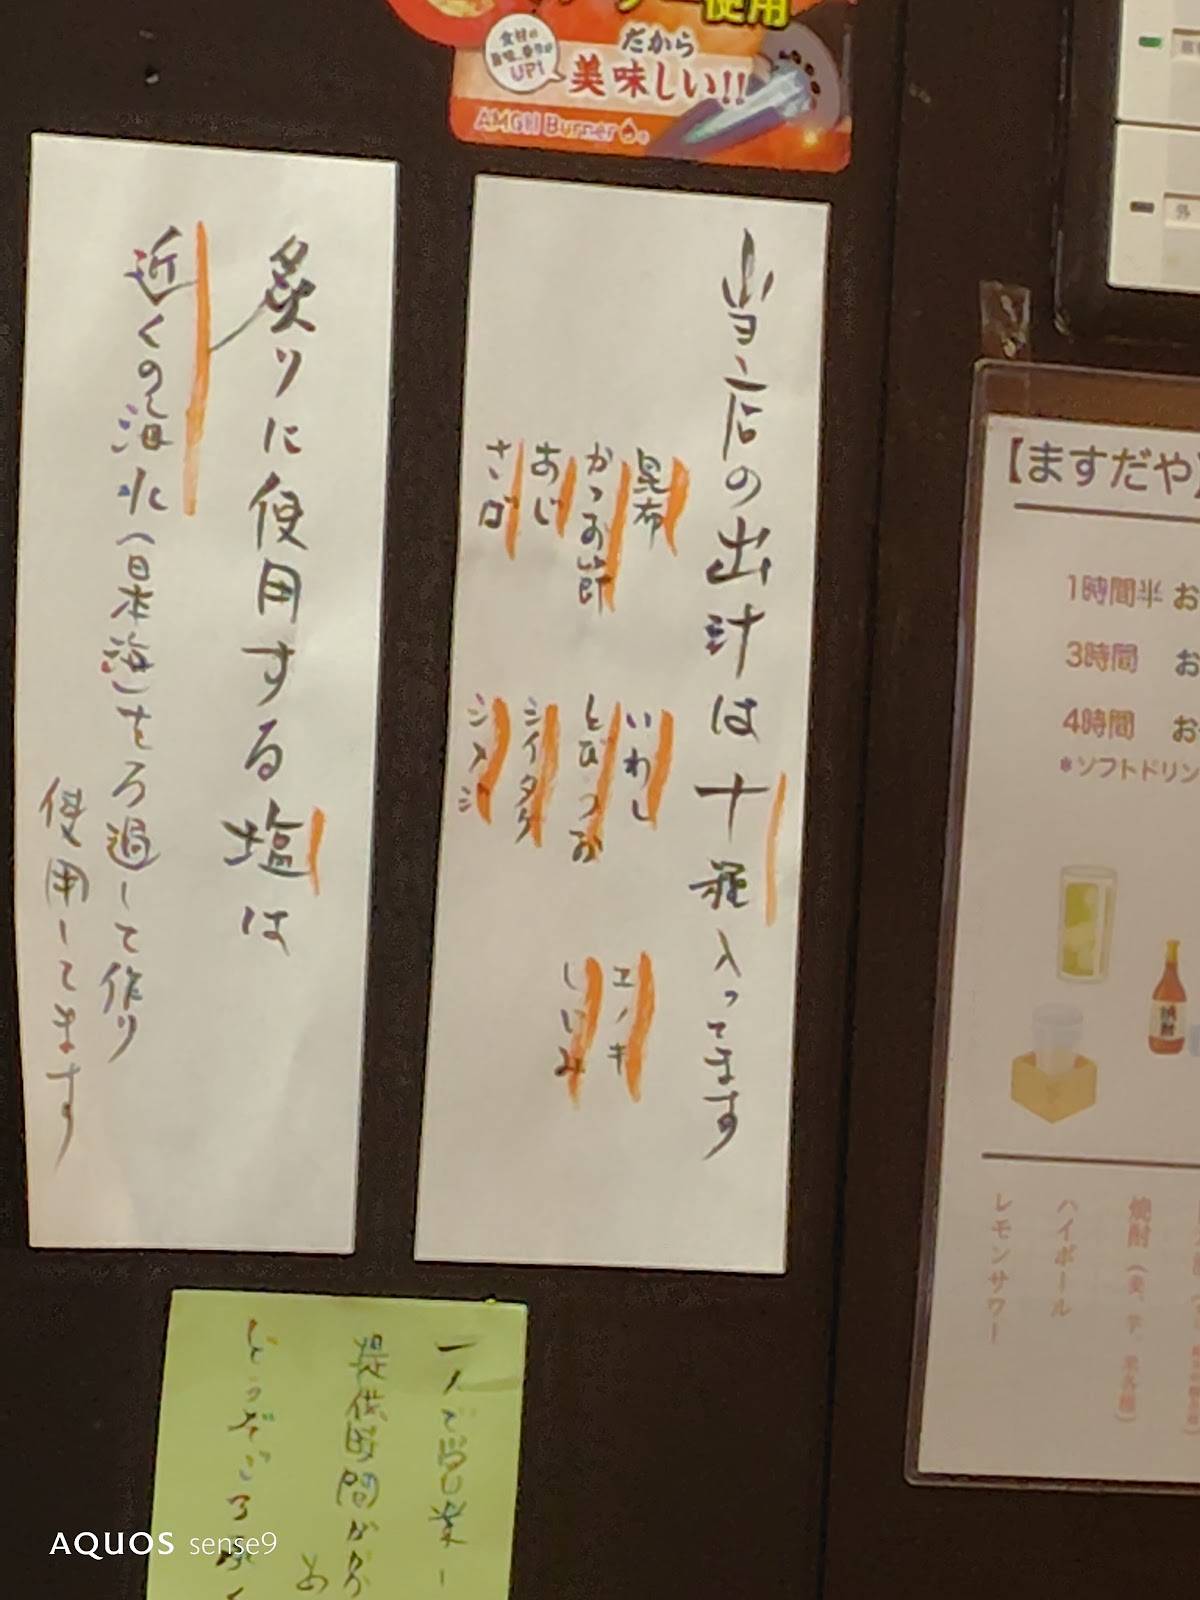 だから
美味しい!!
UP!
AMGH Burner
当店の出汁は十種入ってます
昆布
かつお節
あじ
さば
いわし
とびうお
シイタケ
シメジ
エノキ
しじみ
炙りに使用する塩は
近くの海水(日本海)をろ過して作り
使用してます
【ますだや】
1時間半 お
3時間 お
4時間 お
*ソフトドリン
焼酎
ハイボール
レモンサワー
一人で営業し
提供時間がか
どうぞご了承く
AQUOS sense9